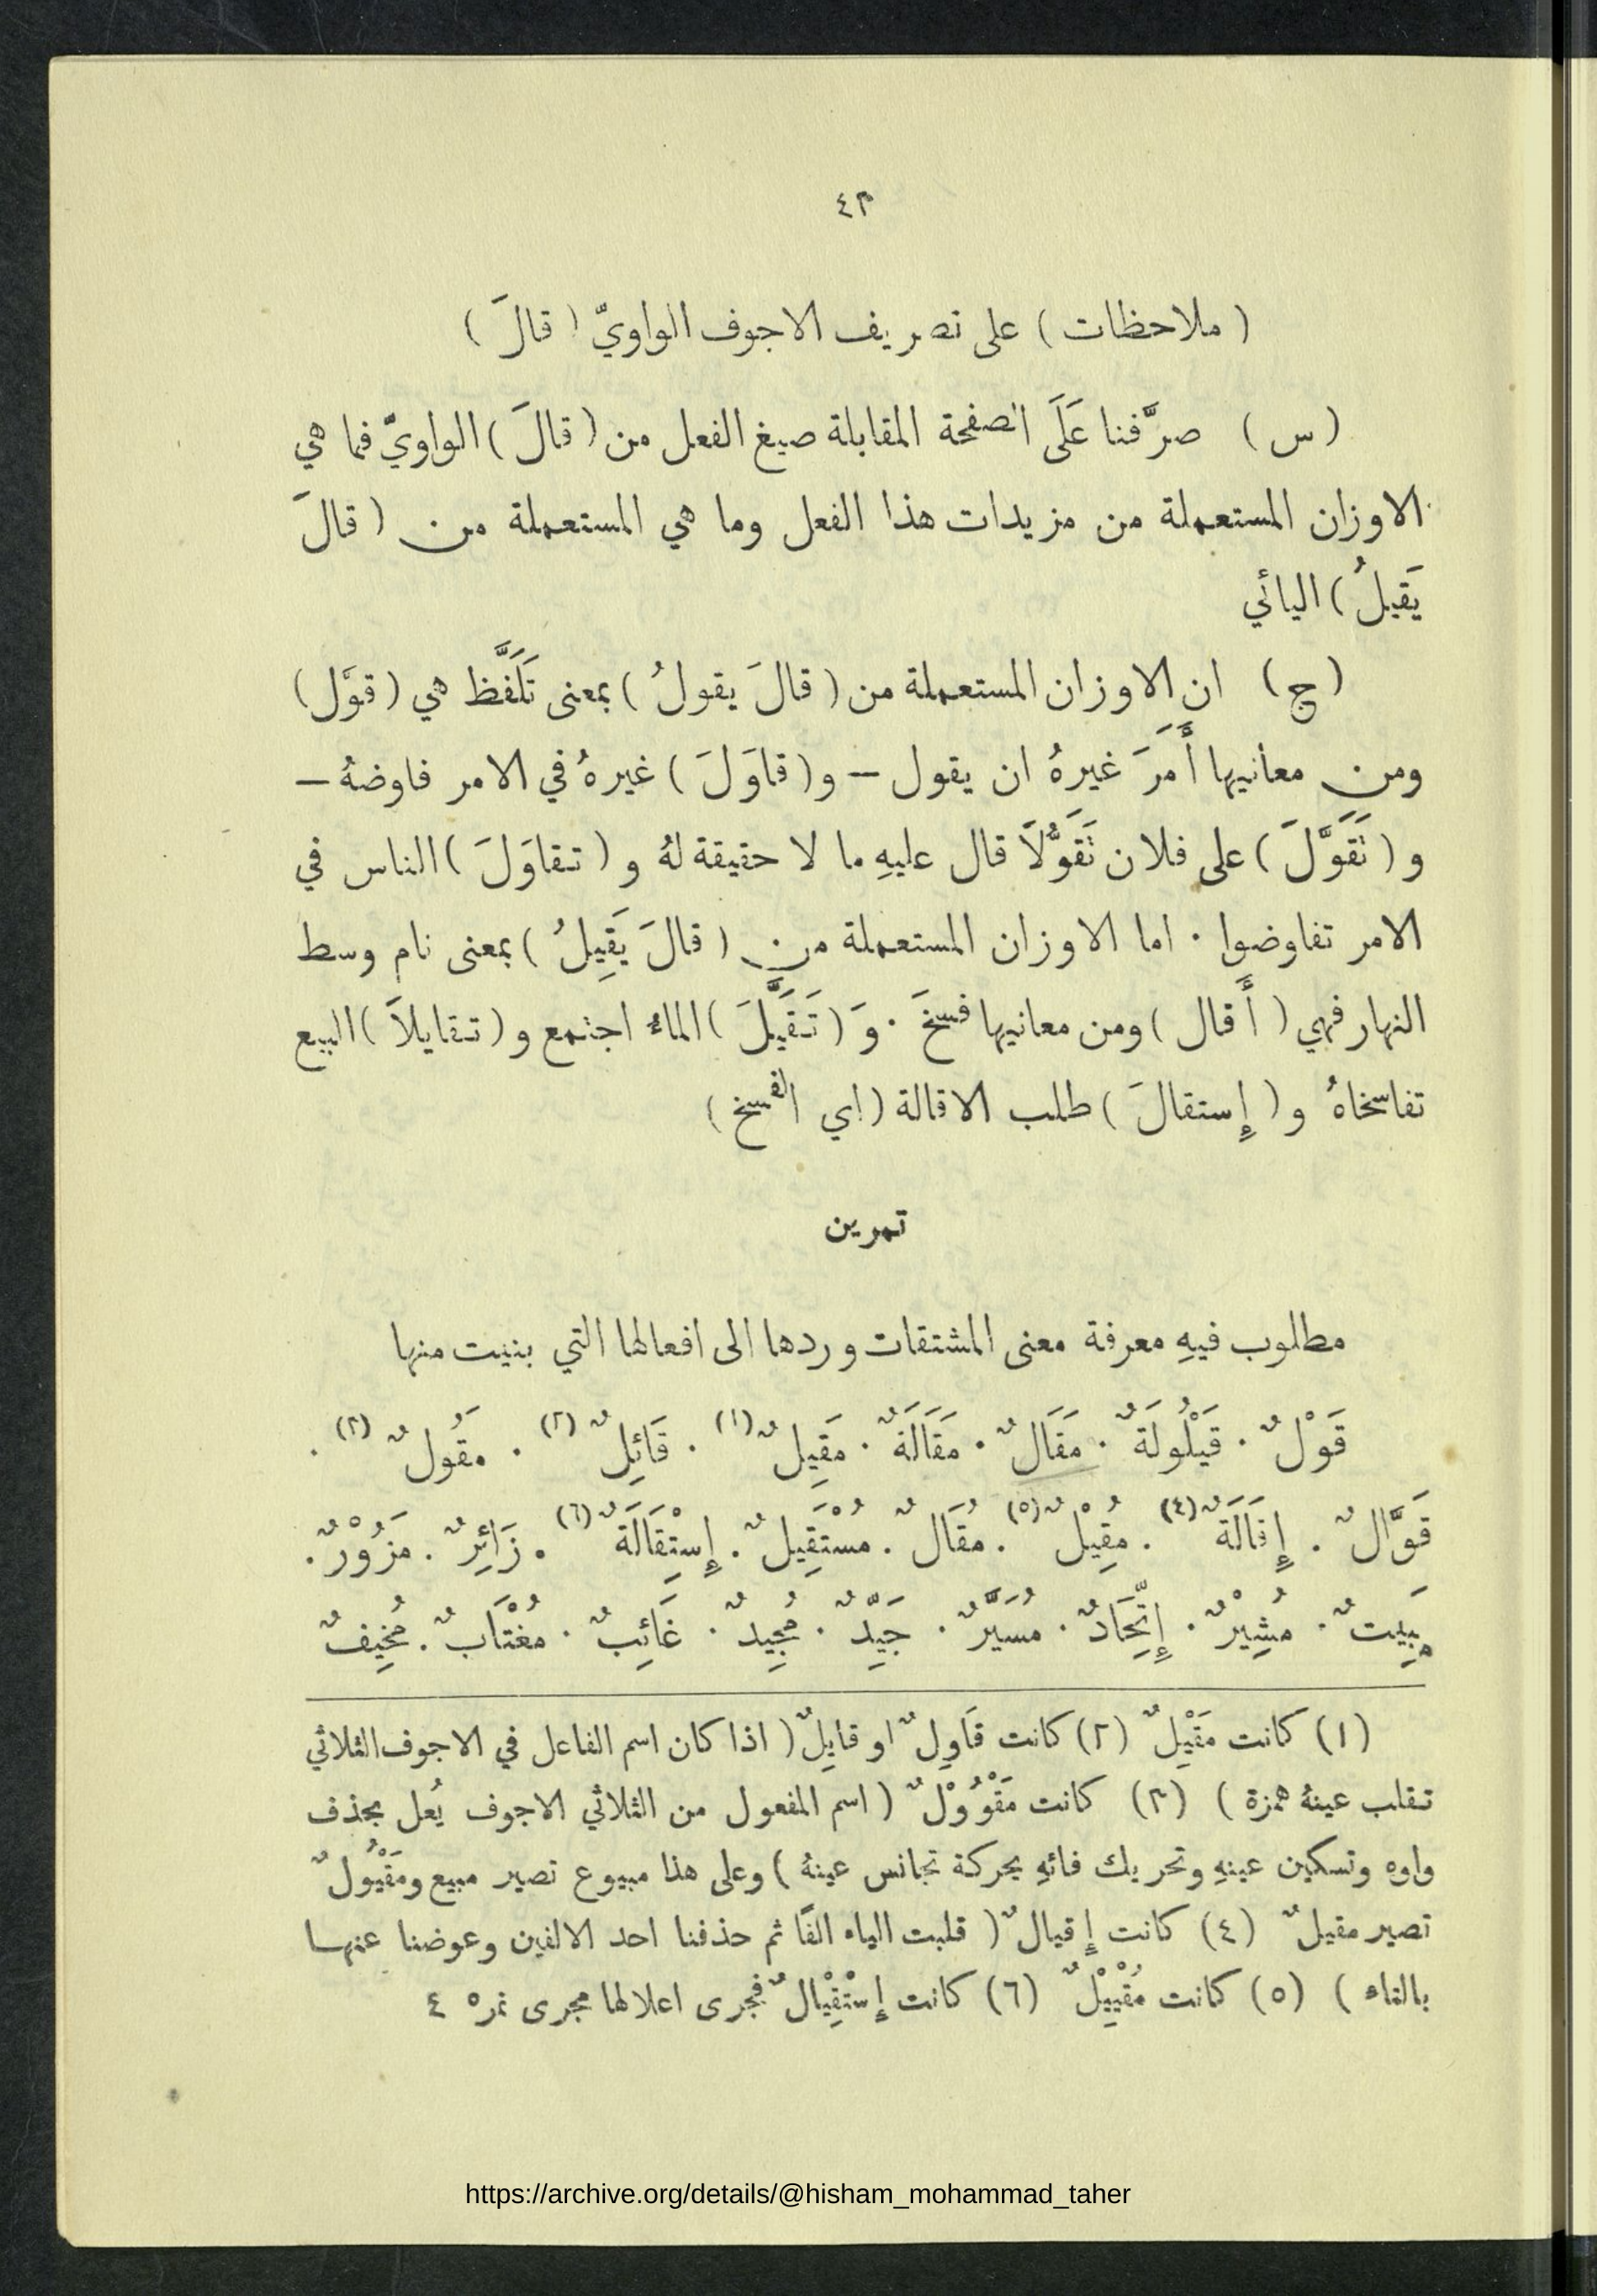 ٤٣
( ملاحظات ) على تصريف الاجوف الواويّ ( قالَ )
( س ) صرَّفنا عَلَى الصفحة المقابلة صيغ الفعل من ( قالَ ) الواويّ فما هي
الاوزان المستعملة من مزيدات هذا الفعل وما هي المستعملة من ( قالَ
يَقيلُ ) اليائي
( ج ) ان الاوزان المستعملة من ( قالَ يقولُ ) بمعنى تَلَفَّظ هي ( قوَّل )
ومن معانيها أَمَرَ غيرهُ ان يقول – و ( قاوَلَ ) غيرهُ في الامر فاوضهُ –
و ( تَقَوَّلَ ) على فلان تَقَوُّلاً قال عليهِ ما لا حقيقة لهُ و ( تقاوَلَ ) الناس في
الامر تفاوضوا . اما الاوزان المستعملة من ( قالَ يَقِيلُ ) بمعنى نام وسط
النهار فهي ( أَقال ) ومن معانيها فسخَ . وَ ( تَقَيَّلَ ) الماءُ اجتمع و ( تقايلاَ ) البيع
تفاسخاهُ و ( إِستقالَ ) طلب الاقالة ( اي الفسخ )
تمرين
مطلوب فيهِ معرفة معنى المشتقات وردها الى افعالها التي بنيت منها
قَوْلٌ . قَيْلُولَةٌ . مَقَالٌ . مَقَالَةٌ . مَقِيلٌ (١) . قَائِلٌ (٢) . مقُولٌ (٣) .
قَوَّالٌ . إِقَالَةٌ (٤) . مُقِيْلٌ (٥) . مُقَالٌ . مُسْتَقِيلٌ . إِسْتِقَالَةٌ (٦) . زَائِرٌ . مَزُوْرٌ .
مَبِيتٌ . مُشِيْرٌ . إِتِّحَادٌ . مُسَيَّرٌ . جَيِّدٌ . مُجِيدٌ . غَائِبٌ . مُغْتَابٌ . مُخِيفٌ
(١) كانت مَقْيِلٌ (٢) كانت قَاوِلٌ او قايِلٌ ( اذا كان اسم الفاعل في الاجوف الثلاثي
تقلب عينهُ همزة ) (٣) كانت مَقْوُوْلٌ ( اسم المفعول من الثلاثي الاجوف يُعل بحذف
واوه وتسكين عينهِ وتحريك فائهِ بحركة تجانس عينهُ ) وعلى هذا مبيوع تصير مبيع ومَقْيُولٌ
تصير مقيلٌ (٤) كانت إِقيالٌ ( قلبت الياء الفًا ثم حذفنا احد الالفين وعوضنا عنها
بالتاء ) (٥) كانت مُقْيِيْلٌ (٦) كانت إِسْتِقْيالٌ فجرى اعلالها مجرى نمره ٤
https://archive.org/details/@hisham_mohammad_taher